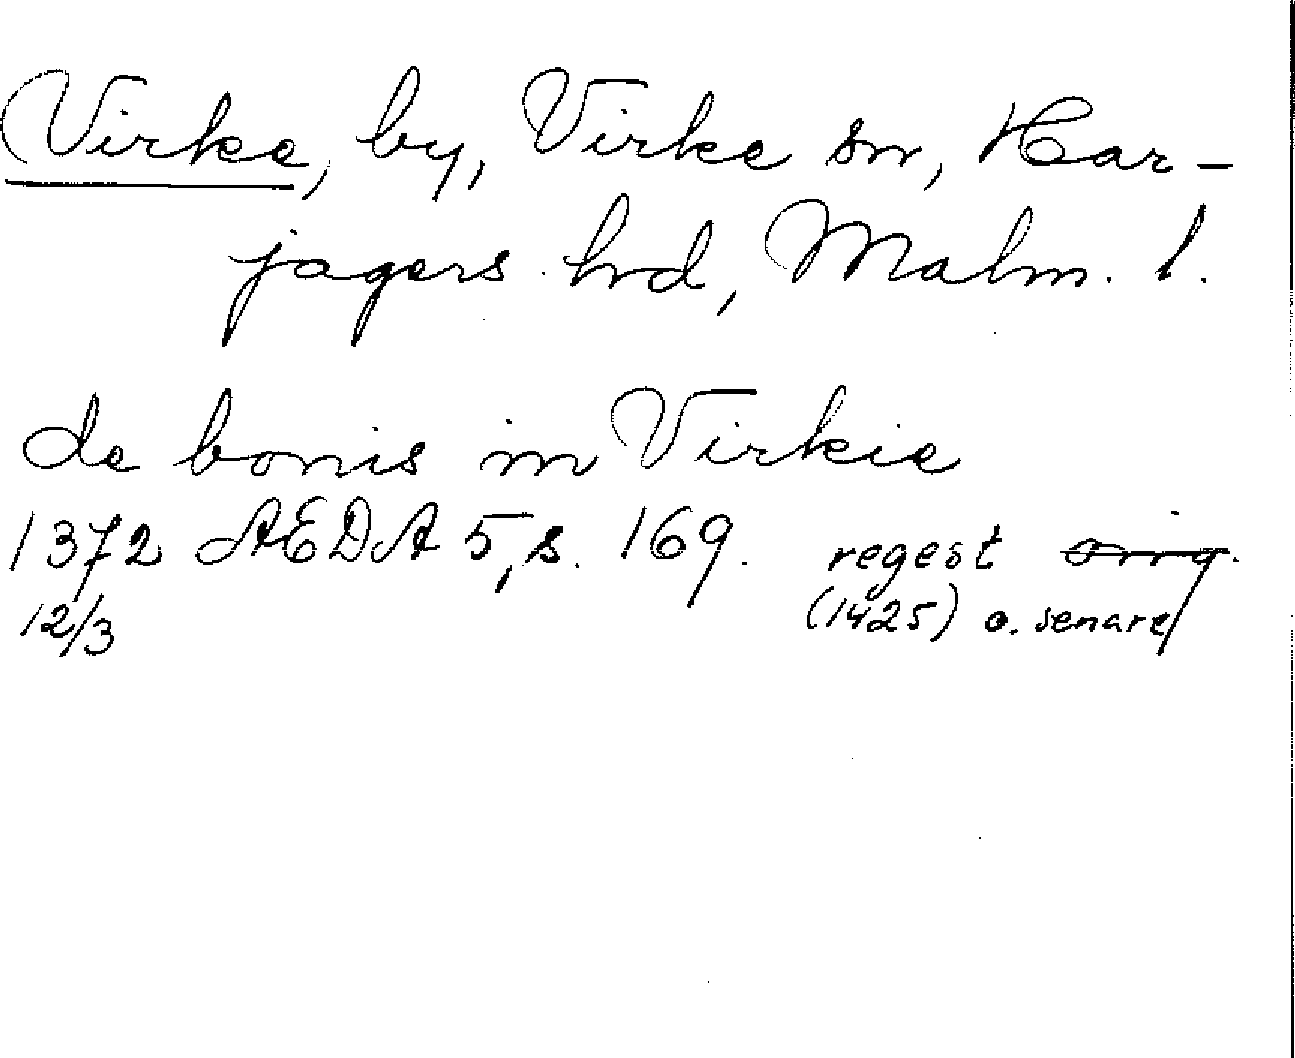 Virke, by, Virke sn, Har-
jagers hrd, Malm. l.
de bonis in Virkie
1372 AEDA 5, s. 169. regest orig.
12/3 (1425) o. senare